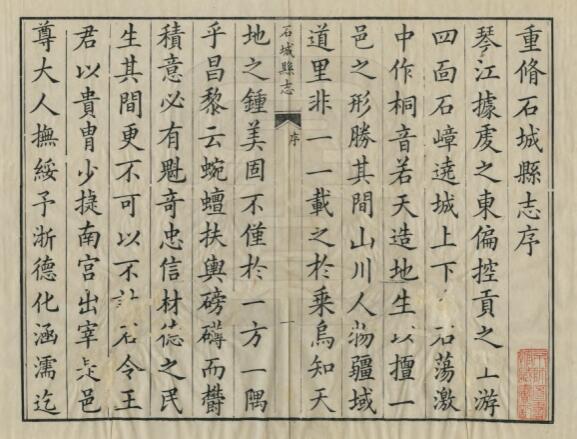 重脩石城縣志序
琴江據虔之東偏控貢之上游
四面石嶂遶城上下石蕩激
中作桐音若天造地生以擅一
邑之形勝其間山川人物疆域
道里非一一載之於乗烏知天
石城縣志
序
一
地之鍾美固不僅於一方一隅
乎昌黎云蜿蟺扶輿磅礴而鬱
積意必有魁竒忠信材徳之民
生其間更不可以不計石令王
君以貴胄少捷南宮出宰是邑
尊大人撫綏予浙德化涵濡迄